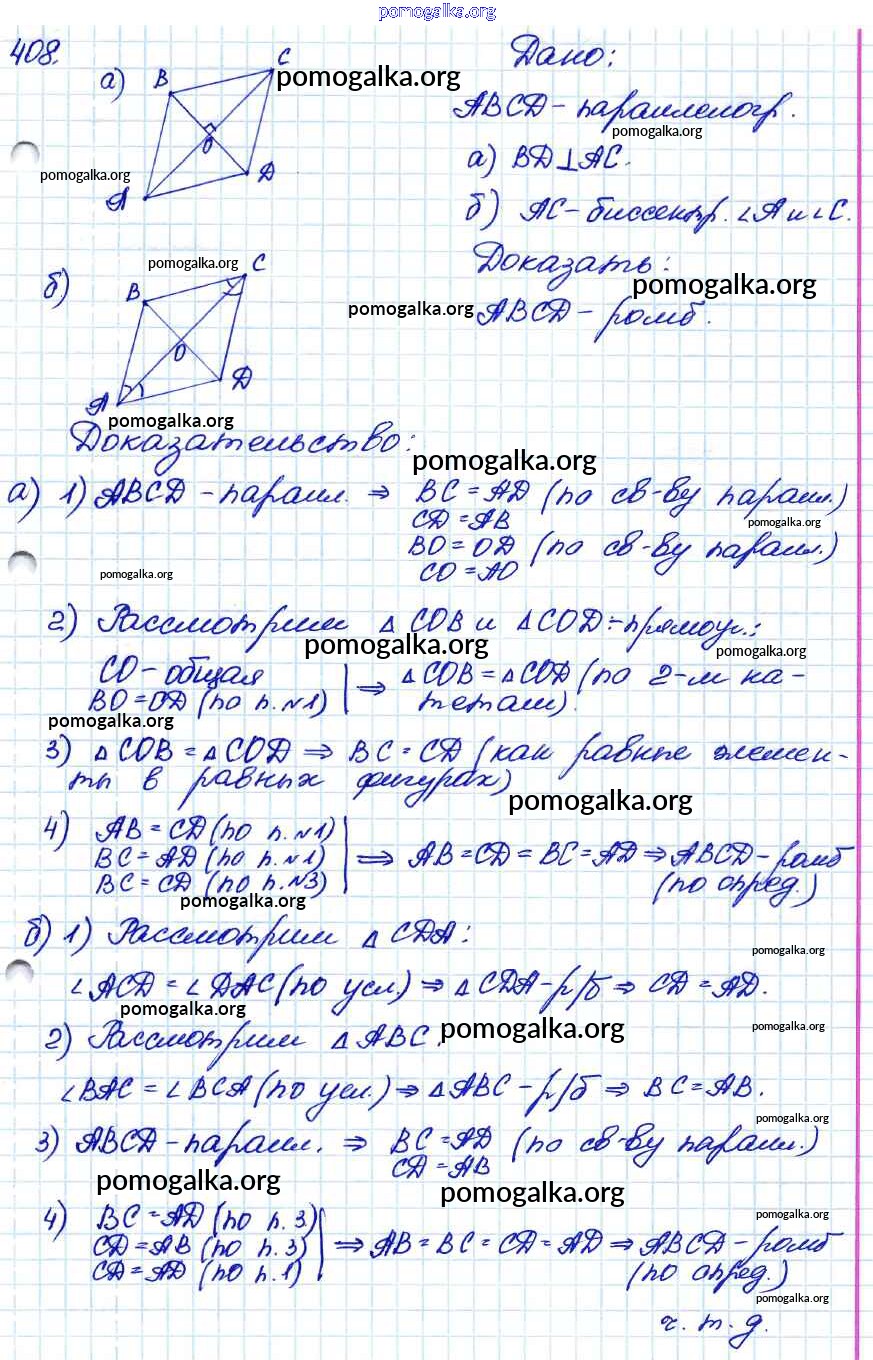 pomogalka.org
408.
а) B C A D O
pomogalka.org
pomogalka.org
Дано:
ABCD - параллелогр.
pomogalka.org
а) BD ⊥ AC.
б) AC - биссектр. ∠A и ∠C.
Доказать:
pomogalka.org
ABCD - ромб.
pomogalka.org
pomogalka.org
б) B C A D O
pomogalka.org
Доказательство:
pomogalka.org
а) 1) ABCD - паралл. ⇒ BC = AD (по св-ву паралл.)
CD = AB
pomogalka.org
BO = OD (по св-ву паралл.)
CO = AO
pomogalka.org
2) Рассмотрим △ COB и △ COD - прямоуг.:
pomogalka.org
pomogalka.org
CO - общая
BO = OD (по п. №1) | ⇒ △ COB = △ COD (по 2-м ка-
тетам).
pomogalka.org
3) △ COB = △ COD ⇒ BC = CD (как равные элемен-
ты в равных фигурах)
pomogalka.org
4) AB = CD (по п. №1)
BC = AD (по п. №1) | ⇒ AB = CD = BC = AD ⇒ ABCD - ромб
BC = CD (по п. №3) (по опред.)
pomogalka.org
б) 1) Рассмотрим △ CDA:
pomogalka.org
∠ACD = ∠DAC (по усл.) ⇒ △ CDA - р/б ⇒ CD = AD.
pomogalka.org
2) Рассмотрим △ ABC.
pomogalka.org
pomogalka.org
∠BAC = ∠BCA (по усл.) ⇒ △ ABC - р/б ⇒ BC = AB.
pomogalka.org
3) ABCD - паралл. ⇒ BC = AD (по св-ву паралл.)
CD = AB
pomogalka.org
pomogalka.org
pomogalka.org
4) BC = AD (по п. 3)
CD = AB (по п. 3) | ⇒ AB = BC = CD = AD ⇒ ABCD - ромб
CD = AD (по п. 1) (по опред.)
pomogalka.org
ч. т. д.